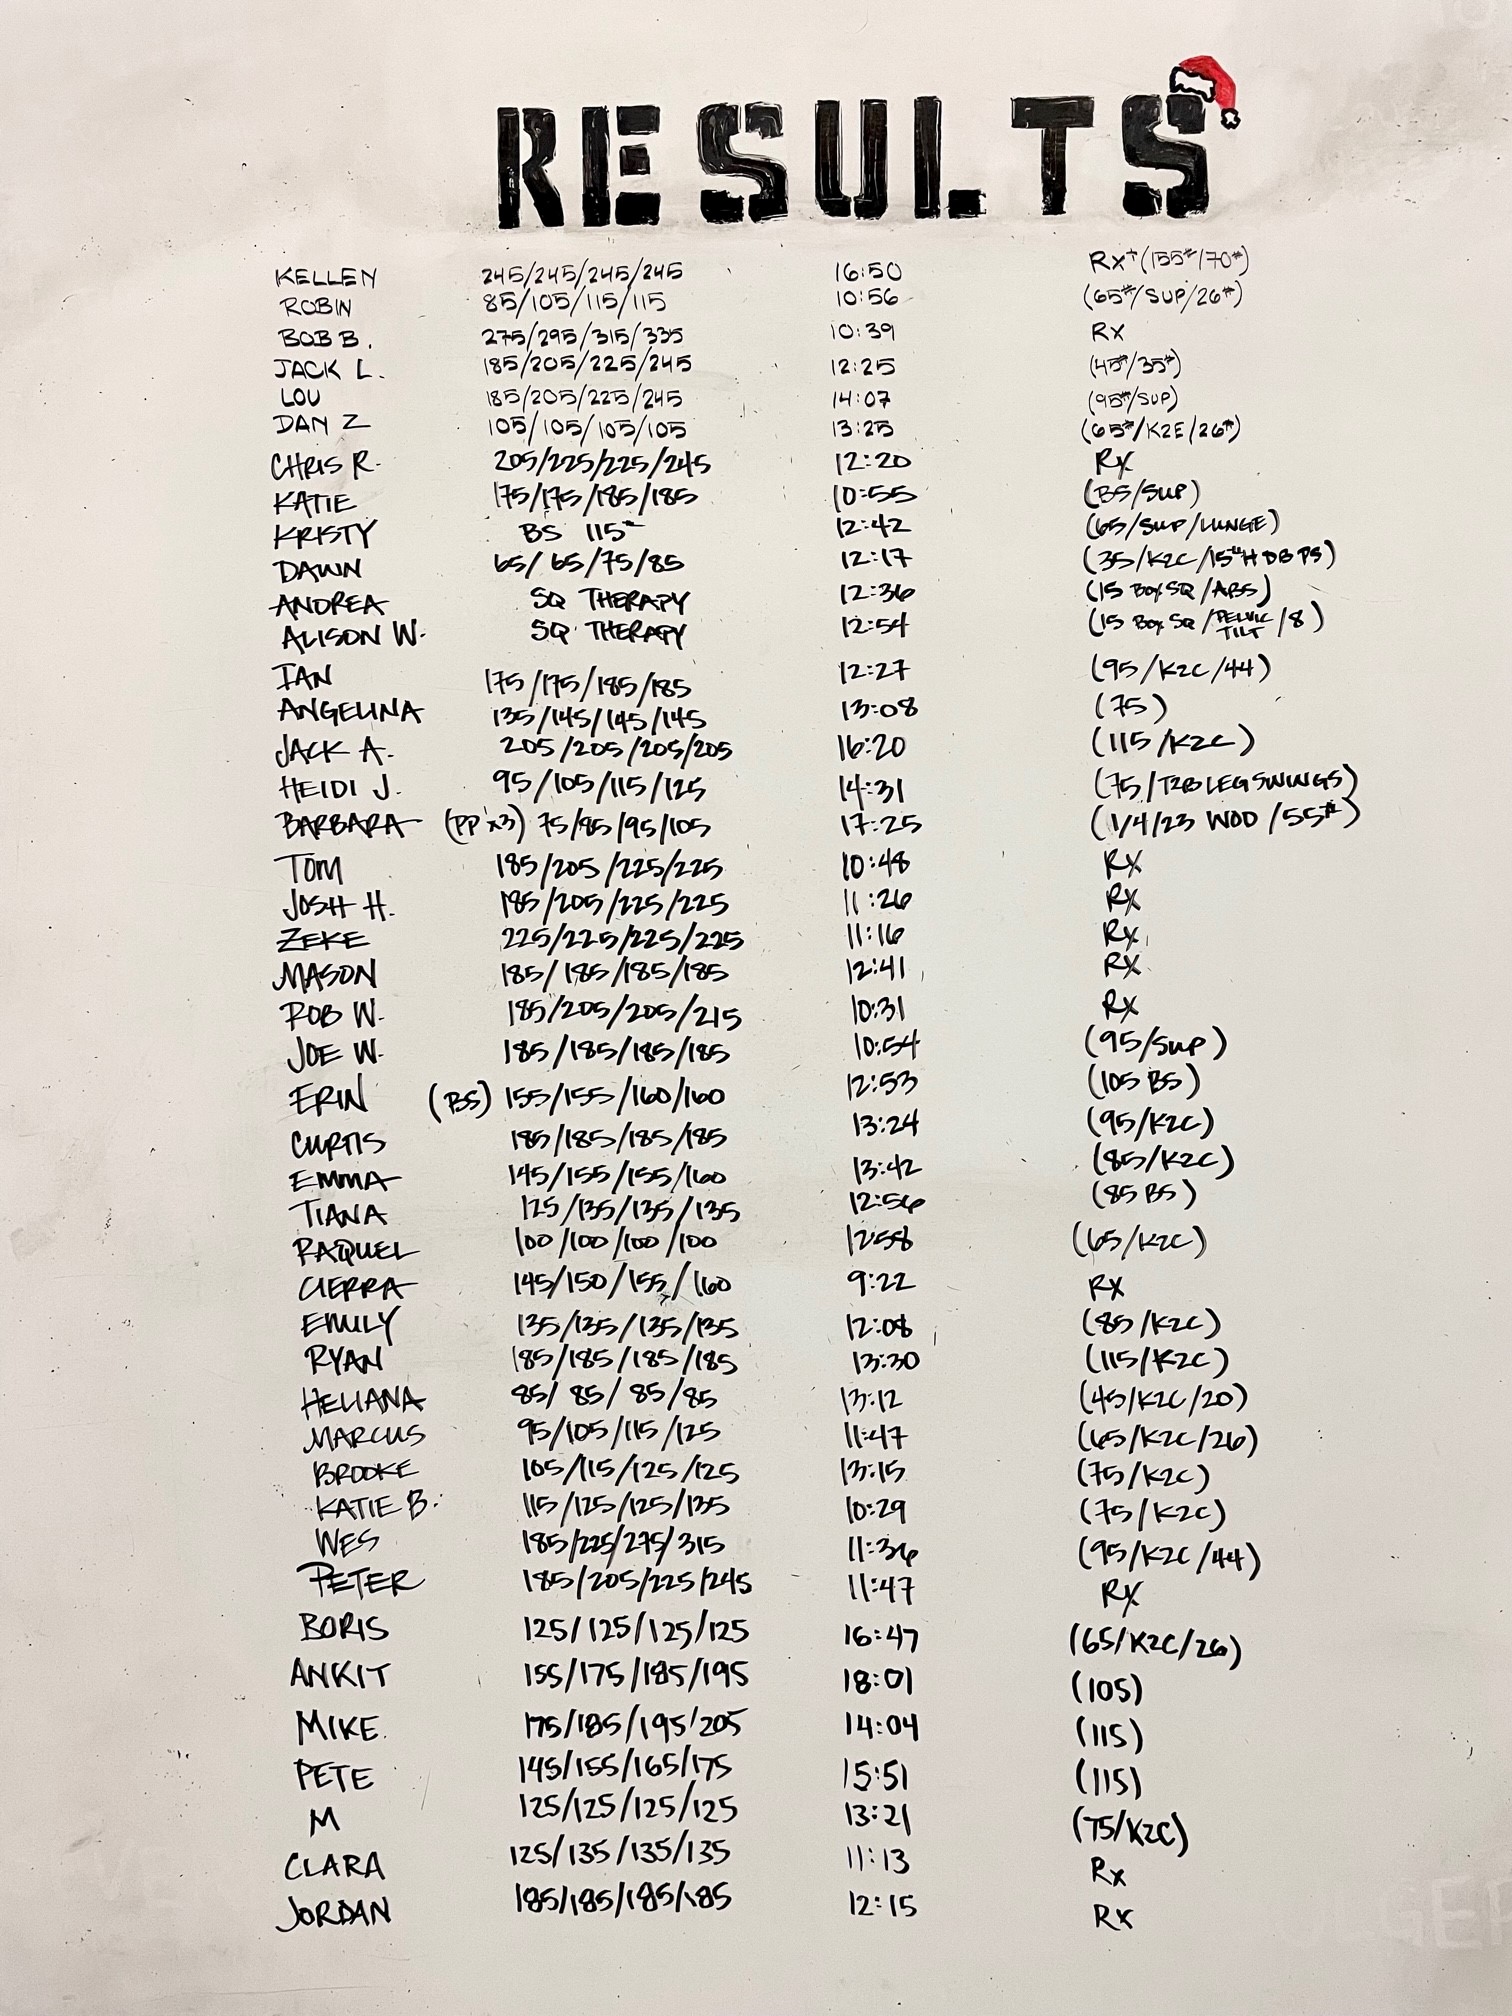 RESULTS
KELLEN 245/245/245/245 16:50 Rx+(155#/70#)
ROBIN 85/105/115/115 10:56 (65#/SUP/26#)
BOB B. 275/295/315/335 10:39 Rx
JACK L. 185/205/225/245 12:25 (45#/35#)
LOU 185/205/225/245 14:07 (95#/SUP)
DAN Z 105/105/105/105 13:25 (65#/K2E/26#)
CHRIS R. 205/225/225/245 12:20 Rx
KATIE 175/175/185/185 10:55 (BS/SUP)
KRISTY BS 115# 12:42 (65/SUP/LUNGE)
DAWN 65/65/75/85 12:17 (35/K2C/15#H DB PS)
ANDREA SQ THERAPY 12:36 (15 BOX SQ/ABS)
ALISON W. SQ THERAPY 12:54 (15 BOX SQ/PELVIC TILT/8)
IAN 175/175/185/185 12:27 (95/K2C/44)
ANGELINA 135/145/145/145 13:08 (75)
JACK A. 205/205/205/205 16:20 (115/K2C)
HEIDI J. 95/105/115/125 14:31 (75/T2B LEG SWINGS)
BARBARA (PP x3) 75/85/95/105 17:25 (1/4/23 WOD/55#)
TOM 185/205/225/225 10:48 Rx
JOSH H. 185/205/225/225 11:26 Rx
ZEKE 225/225/225/225 11:16 Rx
MASON 185/185/185/185 12:41 Rx
ROB W. 185/205/205/215 10:31 Rx
JOE W. 185/185/185/185 10:54 (95/SUP)
ERIN (BS) 155/155/160/160 12:53 (105 BS)
CURTIS 185/185/185/185 13:24 (95/K2C)
EMMA 145/155/155/160 13:42 (85/K2C)
TIANA 125/135/135/135 12:56 (85 BS)
RAQUEL 100/100/100/100 12:58 (65/K2C)
CIERRA 145/150/155/160 9:22 Rx
EMILY 135/135/135/135 12:08 (85/K2C)
RYAN 185/185/185/185 13:30 (115/K2C)
HELIANA 85/85/85/85 13:12 (45/K2C/20)
MARCUS 95/105/115/125 11:47 (65/K2C/26)
BROOKE 105/115/125/125 13:15 (75/K2C)
KATIE B. 115/125/125/135 10:29 (75/K2C)
WES 185/225/275/315 11:36 (95/K2C/44)
PETER 185/205/225/245 11:47 Rx
BORIS 125/125/125/125 16:47 (65/K2C/26)
ANKIT 155/175/185/195 18:01 (105)
MIKE 175/185/195/205 14:04 (115)
PETE 145/155/165/175 15:51 (115)
M 125/125/125/125 13:21 (75/K2C)
CLARA 125/135/135/135 11:13 Rx
JORDAN 185/185/185/185 12:15 Rx